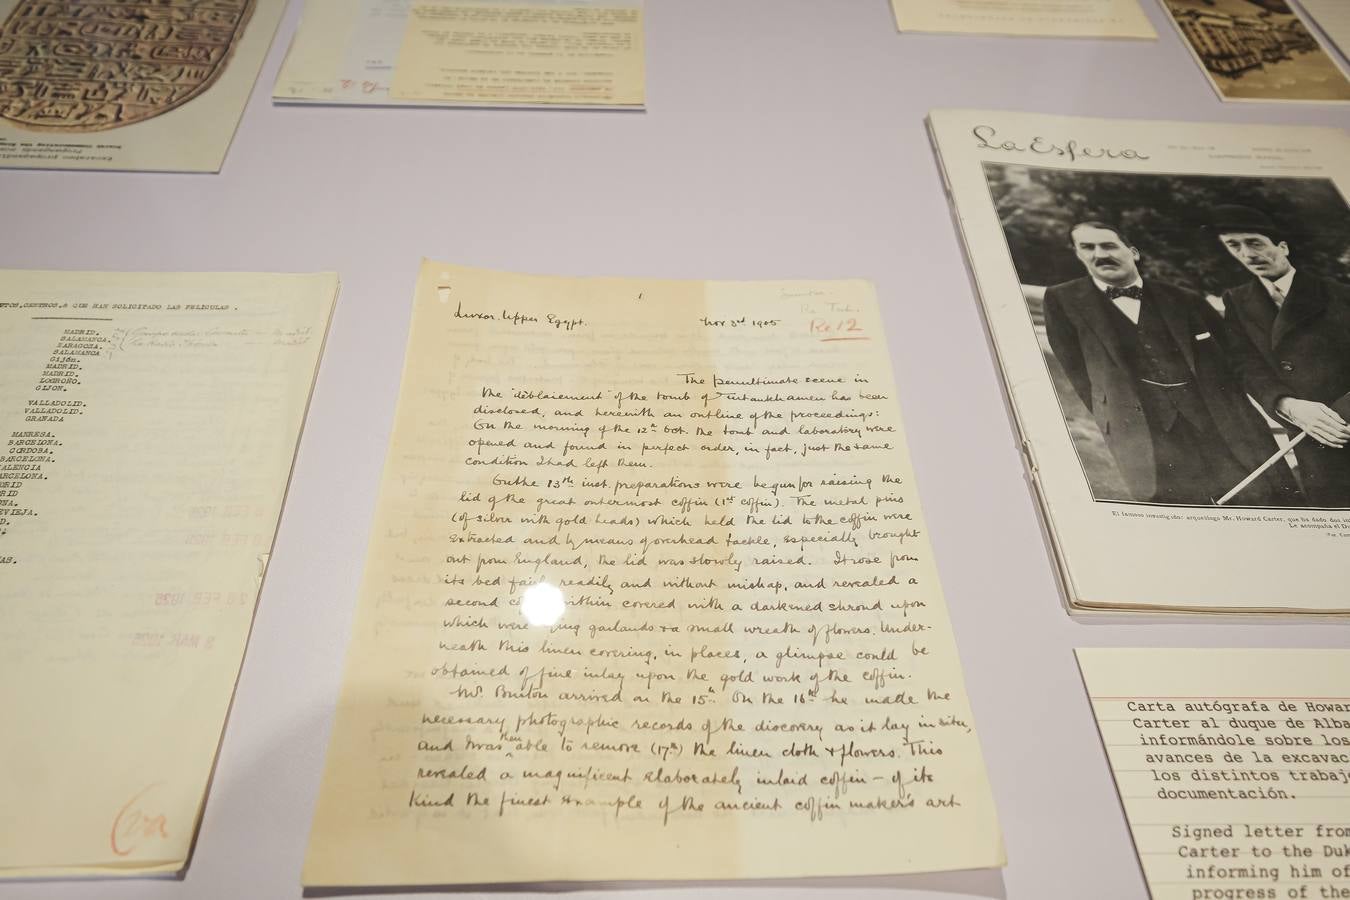 La Esfera
El famoso investigador arqueólogo Mr. Howard Carter, que ha dado dos
Le acompaña el D
CENTROS,& QUE HAN SOLICITADO LAS PELICULAS .
MADRID.
SALAMANCA.
ZARAGOZA.
SALAMANCA
Gijón.
MADRID.
MADRID.
LOGROÑO.
GIJON.
VALLADOLID.
VALLADOLID.
GRANADA
MANRESA.
BARCELONA.
CORDOBA.
BARCELONA.
ALENCIA
ARCELONA.
DRID
RID
NA.
EVIEJA.
D.
AS.
Luxor. Upper Egypt.
Nov 3rd 1905
Re 12
The penultimate scene in
the "déblaiement" of the tomb of Tutankhamen has been
disclosed, and herewith an outline of the proceedings:
On the morning of the 12th Oct. the tomb and laboratory were
opened and found in perfect order, in fact, just the same
condition I had left them.
On the 13th inst. preparations were begun for raising the
lid of the great outermost coffin (1st coffin). The metal pins
(of silver with gold heads) which held the lid to the coffin were
extracted and by means of overhead tackle, especially brought
out from England, the lid was slowly raised. It rose from
its bed fairly readily and without mishap, and revealed a
second within covered with a darkened shroud upon
which were garlands & a small wreath of flowers. Under-
neath this linen covering, in places, a glimpse could be
obtained of fine inlay upon the gold work of the coffin.
Mr. Burton arrived on the 15th. On the 16th he made the
necessary photographic records of the discovery as it lay in situ,
and I was then able to remove (17th) the linen cloth & flowers. This
revealed a magnificent elaborately inlaid coffin – of its
kind the finest example of the ancient coffin maker's art
Carta autógrafa de Howar
Carter al duque de Alba
informándole sobre los
avances de la excavac
los distintos trabaj
documentación.
Signed letter from
Carter to the Duk
informing him of
progress of the